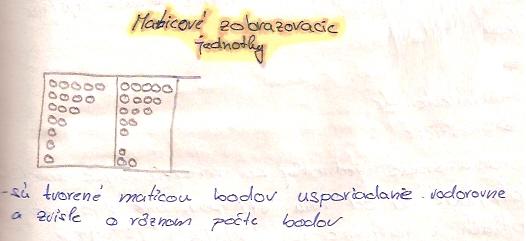 Maticové zobrazovacie
jednotky
- sú tvorené maticou bodov usporiadanie vodorovne
a zvisle o rôznom počte bodov